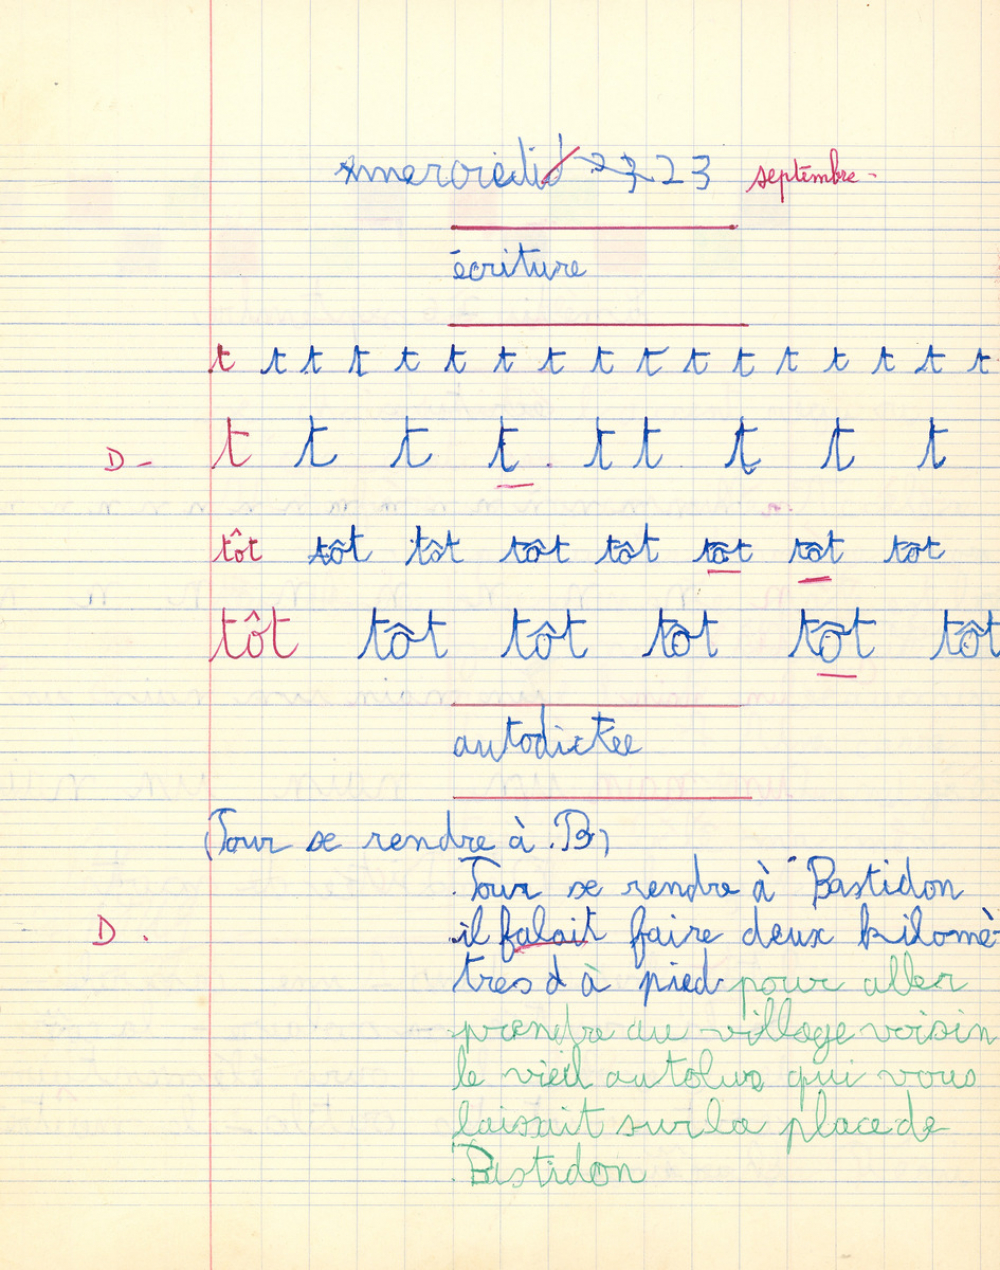 mercredi 23 septembre -
écriture
t t t t t t t t t t t t t t t t t
D - t t t t t t t t t
tôt tôt tôt tôt tôt tôt tôt tôt
tôt tôt tôt tôt tôt tôt
autodictée
(Pour se rendre à B)
Pour se rendre à Bastidon
D . il falait faire deux kilomè-
tres d à pied pour aller
prendre au village voisin
le vieil autobus qui vous
laisait sur la place de
Bastidon